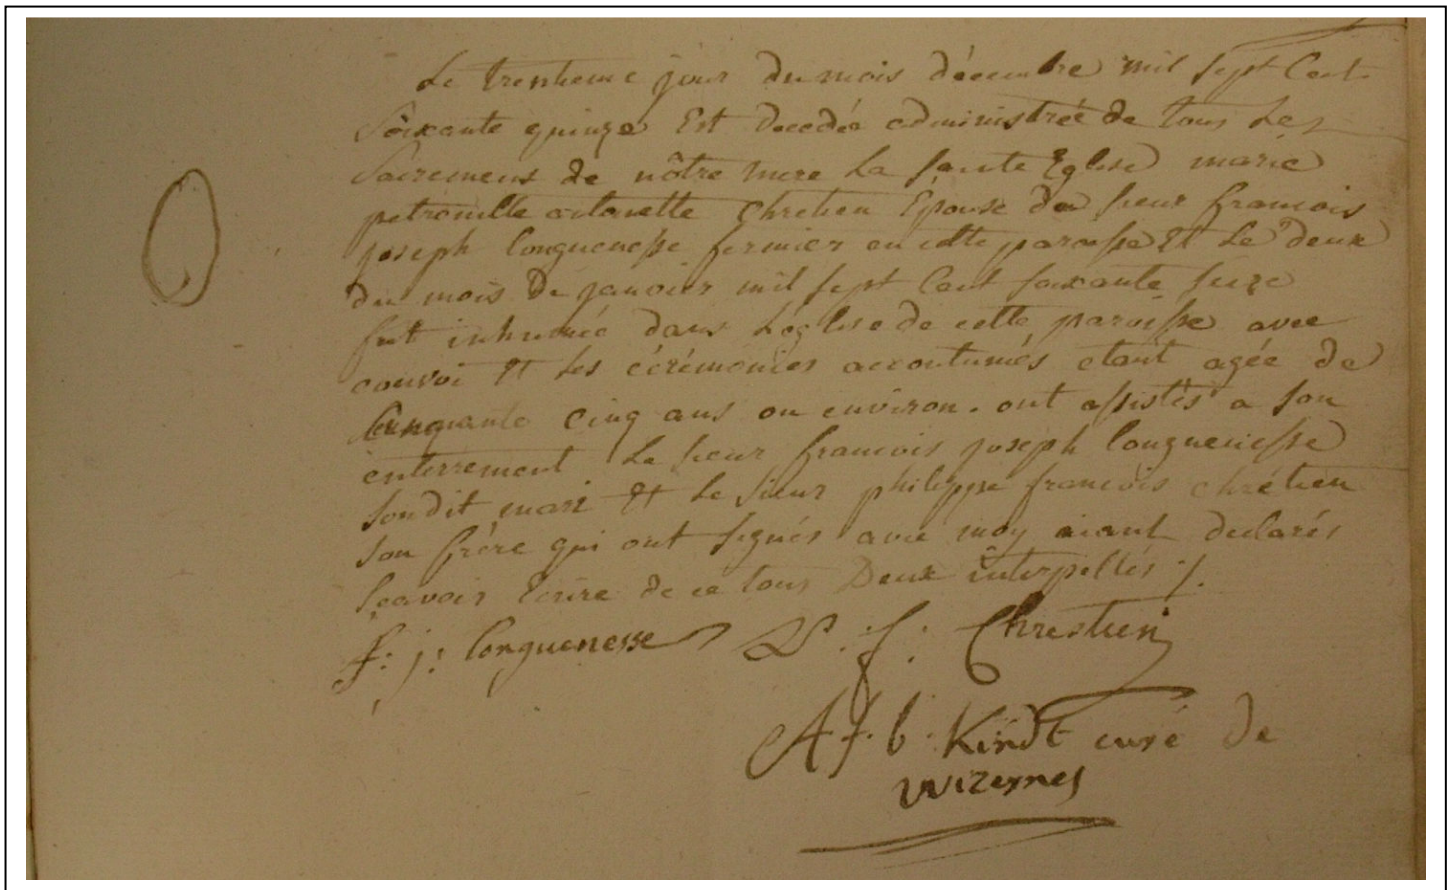 Le trentieme jour du mois décembre mil sept Cent
Soixante quinze Est decedée administrée de tous Les
Sacremens de nôtre mere La sainte Eglise marie
petronille antoinette Chretien Epouse du sieur francois
joseph longuenesse fermier en cette paroisse Et Le deux
du mois De janvier mil sept Cent soixante seize
fut inhumée dans L'eglise de cette paroisse avec
convoi Et les cérémonies accoutumés etant agée de
Cinquante cinq ans ou environ. ont assistés a son
enterrement Le sieur francois joseph longuenesse
sondit mari Et Le sieur philippe francois chrétien
son frère qui ont signés avec moy aiant declarés
scavoir Ecrire de ce tous Deux interpellés /.
f: j: longuenesse P. f: Chrestien
A f. b. Kindt curé de
wizernes